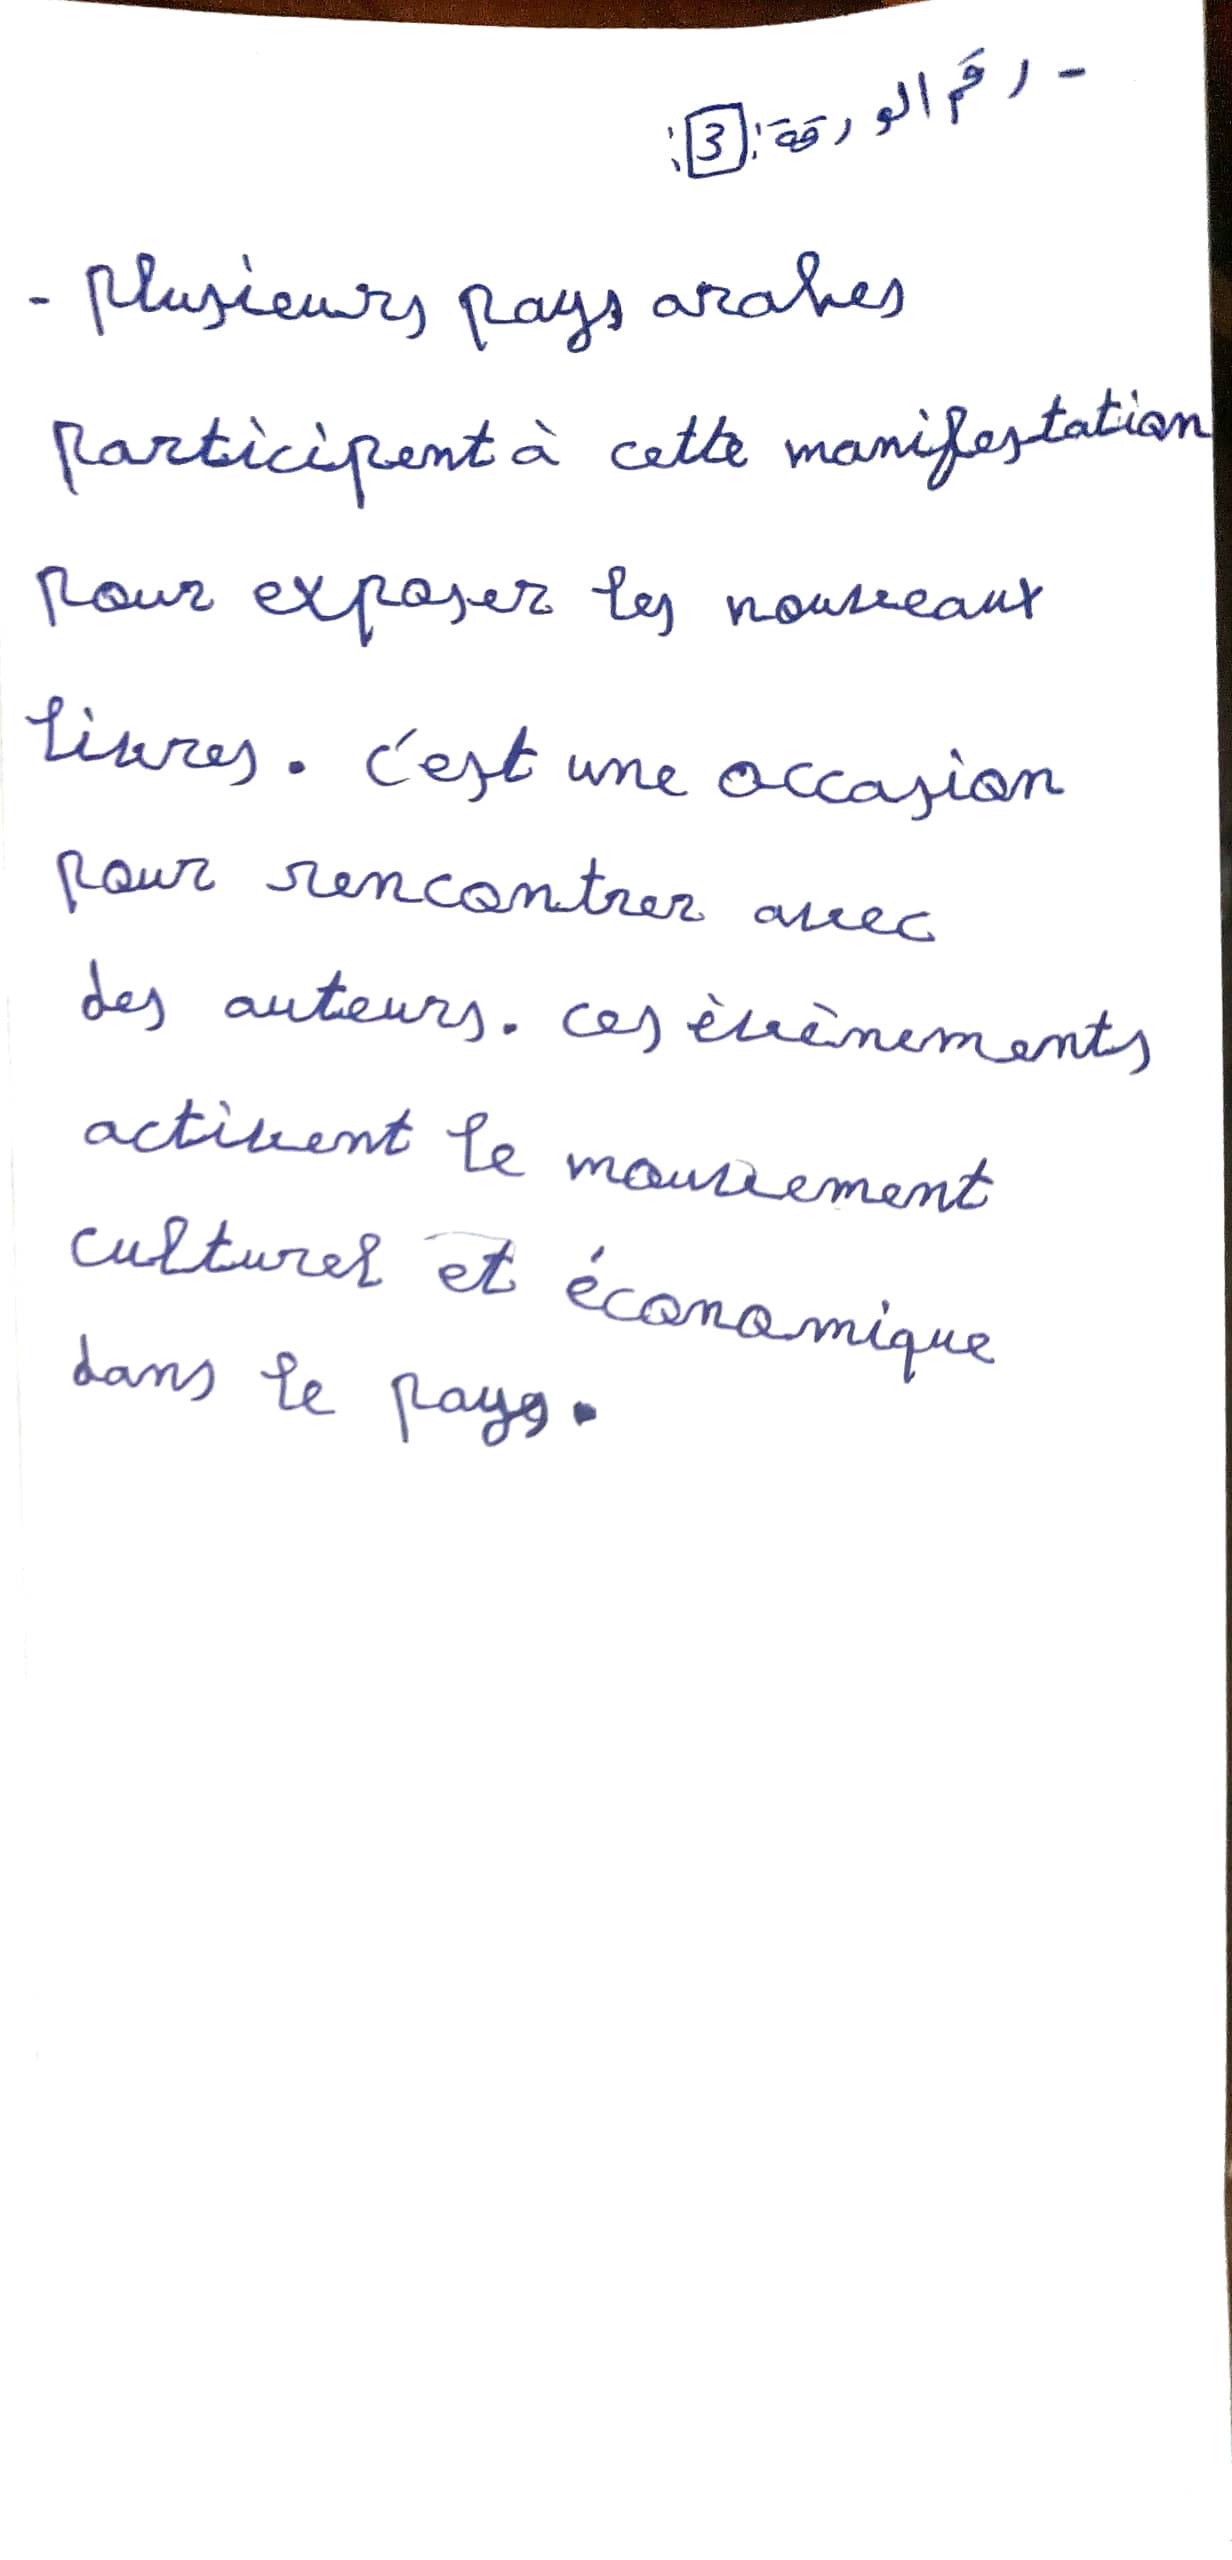 - رقم الورقة: 3:
- plusieurs pays arabes
participent à cette manifestation
pour exposer les nouveaux
livres. c'est une occasion
pour rencontrer avec
des auteurs. ces èvènements
activent le mouvement
culturel et économique
dans le pays.